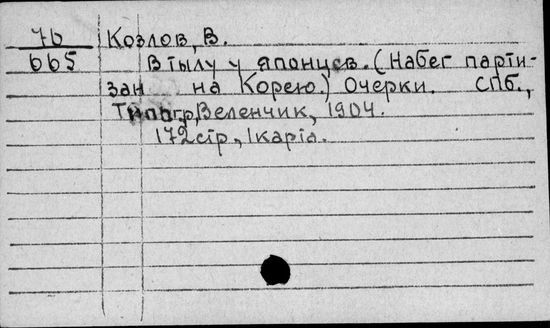 7б Козлов, В.
665 В тылу у японцев. (Набег парти-
зан на Корею.) Очерки. СПб.,
Типогр, Веленчик, 1904.
172стр, 1карта.